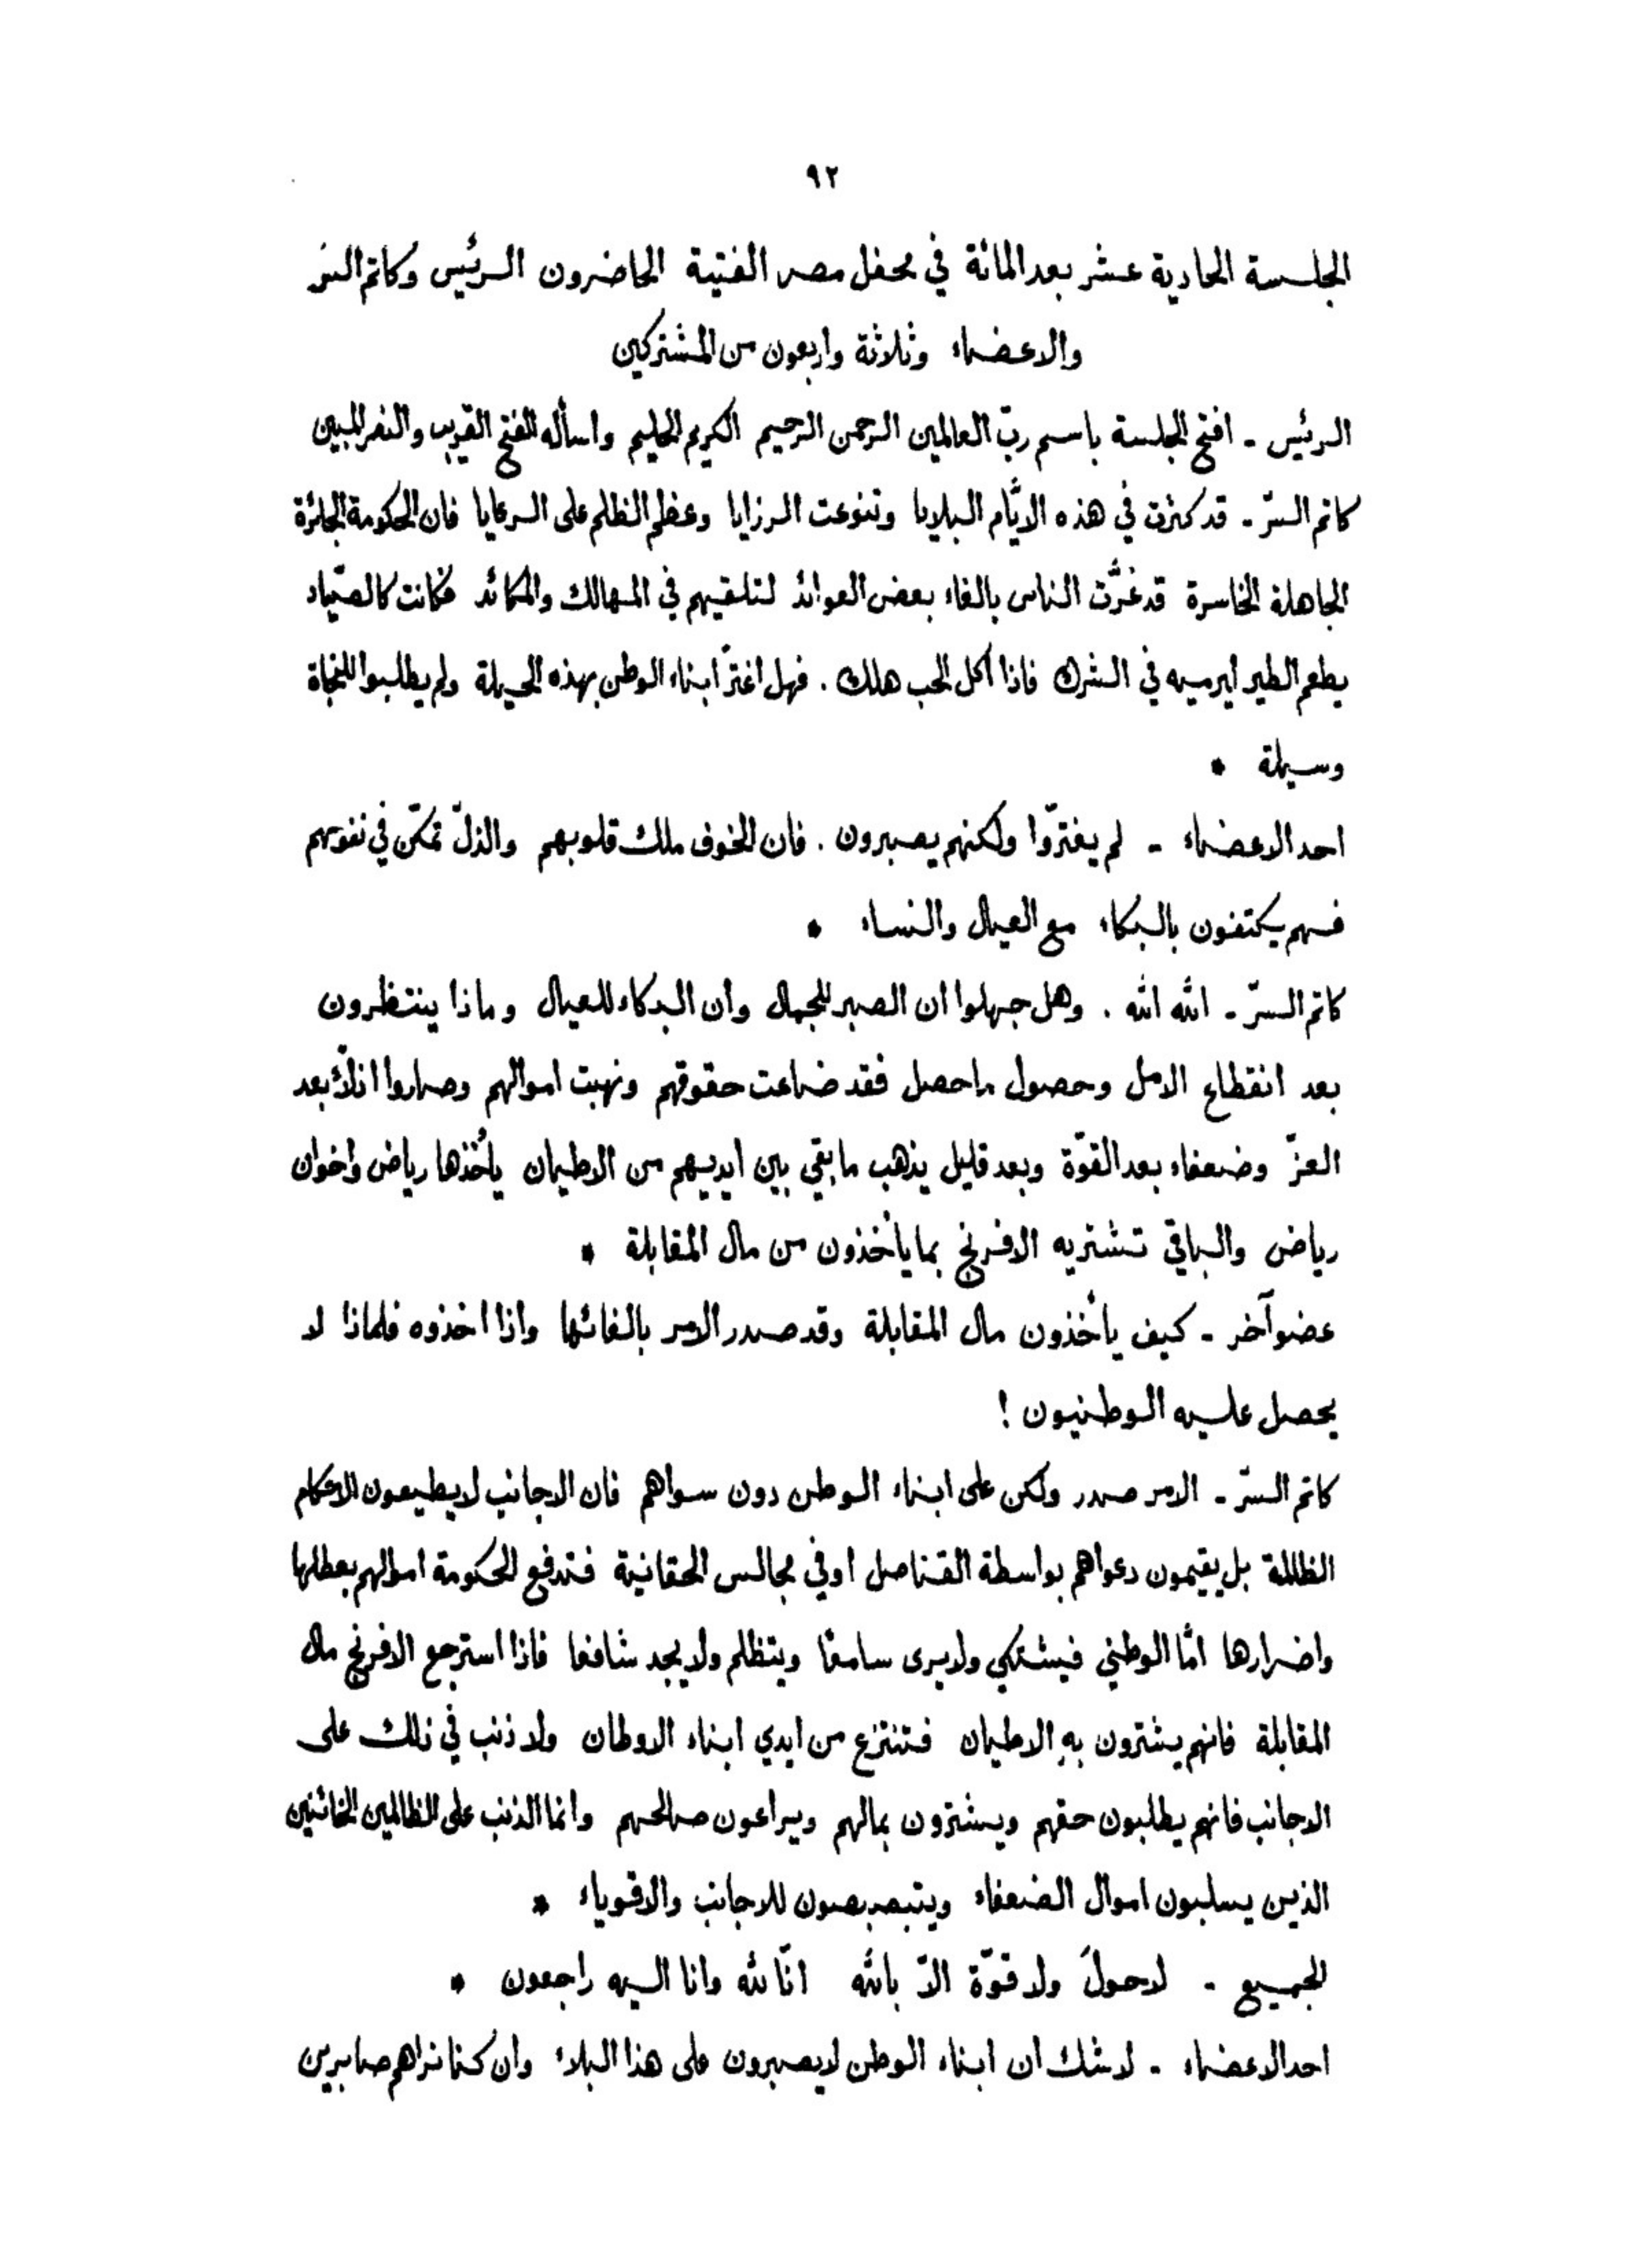 ٩٢
الجلسة الحادية عشر بعد المائة في محفل مصر الفتية الحاضرون الرئيس وكاتم السرّ
والاعضاء وثلاثة واربعون من المشتركين
الرئيس - افتح الجلسة باسم ربّ العالمين الرحمن الرحيم الكريم الحليم واسأله الفتح القريب والنصر المبين
كاتم السرّ - قد كثرت في هذه الايّام البلايا وتنوعت الرزايا وعظم الظلم على الرعايا فان الحكومة الجائرة
الجاهلة الخاسرة قد غرّت الناس بالغاء بعض العوائد لتلقيهم في المهالك والمكائد فكانت كالصيّاد
يطعم الطير ليرميه في الشرك فاذا اكل الحب هلك . فهل اغترّ ابناء الوطن بهذه الحيلة ولم يطلبوا للنجاة
وسيلة *
احد الاعضاء - لم يغترّوا ولكنهم يصبرون . فان الخوف ملك قلوبهم والذلّ تمكّن في نفوسهم
فهم يكتفون بالبكاء مع العيال والنساء *
كاتم السرّ - الله الله . وهل جهلوا ان الصبر للجمال وان البكاء للعيال وماذا ينتظرون
بعد انقطاع الامل وحصول ما حصل فقد ضاعت حقوقهم ونهبت اموالهم وصاروا اذلّاء بعد
العزّ وضعفاء بعد القوّة وبعد قليل يذهب ما بقي بين ايديهم من الاطيان يأخذها رياض واخوان
رياض والباقي تشتريه الافرنج بما يأخذون من مال المقابلة *
عضو آخر - كيف يأخذون مال المقابلة وقد صدر الامر بالغائها واذا اخذوه فلماذا لا
يحصل عليه الوطنيون !
كاتم السرّ - الامر صدر ولكن على ابناء الوطن دون سواهم فان الاجانب لا يطيعون الاحكام
الظالمة بل يقيمون دعواهم بواسطة القناصل او في مجالس الحقانية فتدفع الحكومة اموالهم بعطلها
واضرارها امّا الوطني فيشتكي ولا يرى سامعًا ويتظلم ولا يجد شافعا فاذا استرجع الافرنج مال
المقابلة فانهم يشترون بهِ الاطيان فتنتزع من ايدي ابناء الاوطان ولا ذنب في ذلك على
الاجانب فانهم يطلبون حقهم ويشترون بمالهم ويراعون صالحهم وانما الذنب على الظالمين الخائنين
الذين يسلبون اموال الضعفاء ويتبصبصون للاجانب والاقوياء *
الجميع - لا حولَ ولا قوّة الّا بالله انّا لله وانا اليه راجعون *
احد الاعضاء - لا شك ان ابناء الوطن لا يصبرون على هذا البلاء وان كنا نراهم صابرين